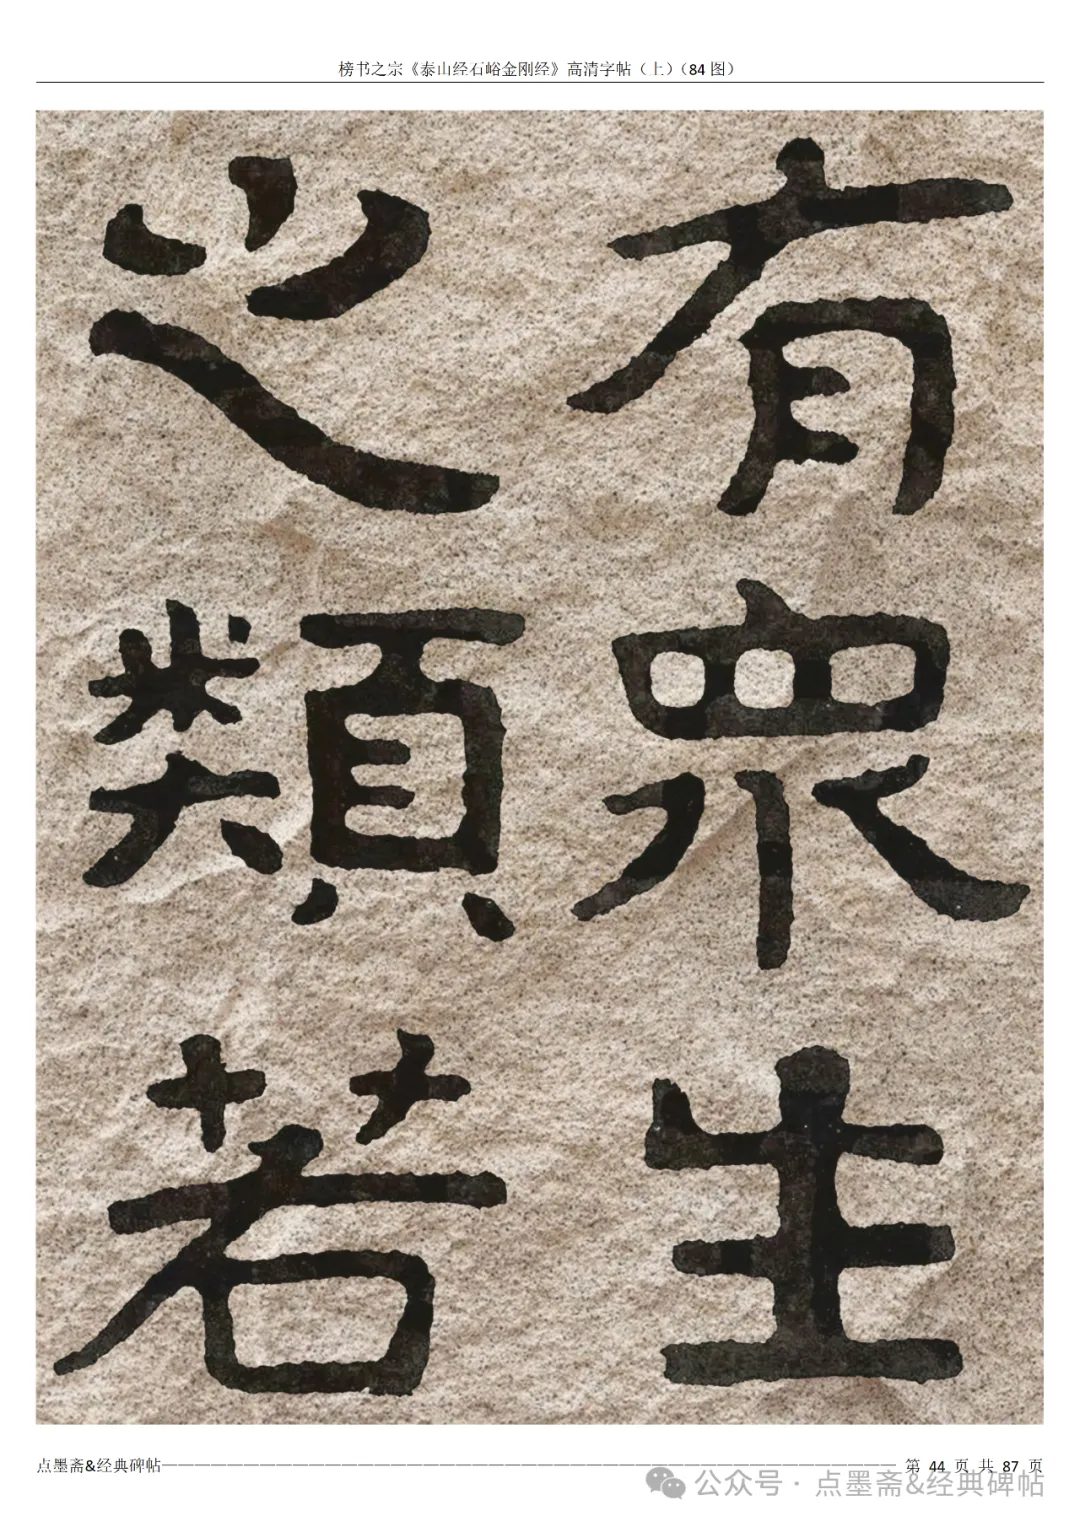 榜书之宗《泰山经石峪金刚经》高清字帖（上）（84 图）
有眾生
之類若
点墨斋&经典碑帖 第 44 页 共 87 页
公众号 · 点墨斋&经典碑帖